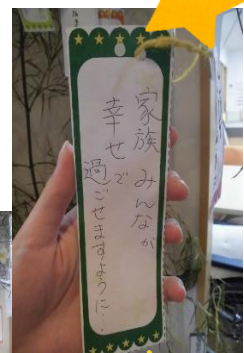 家族みんなが
幸せで
過ごせますように..